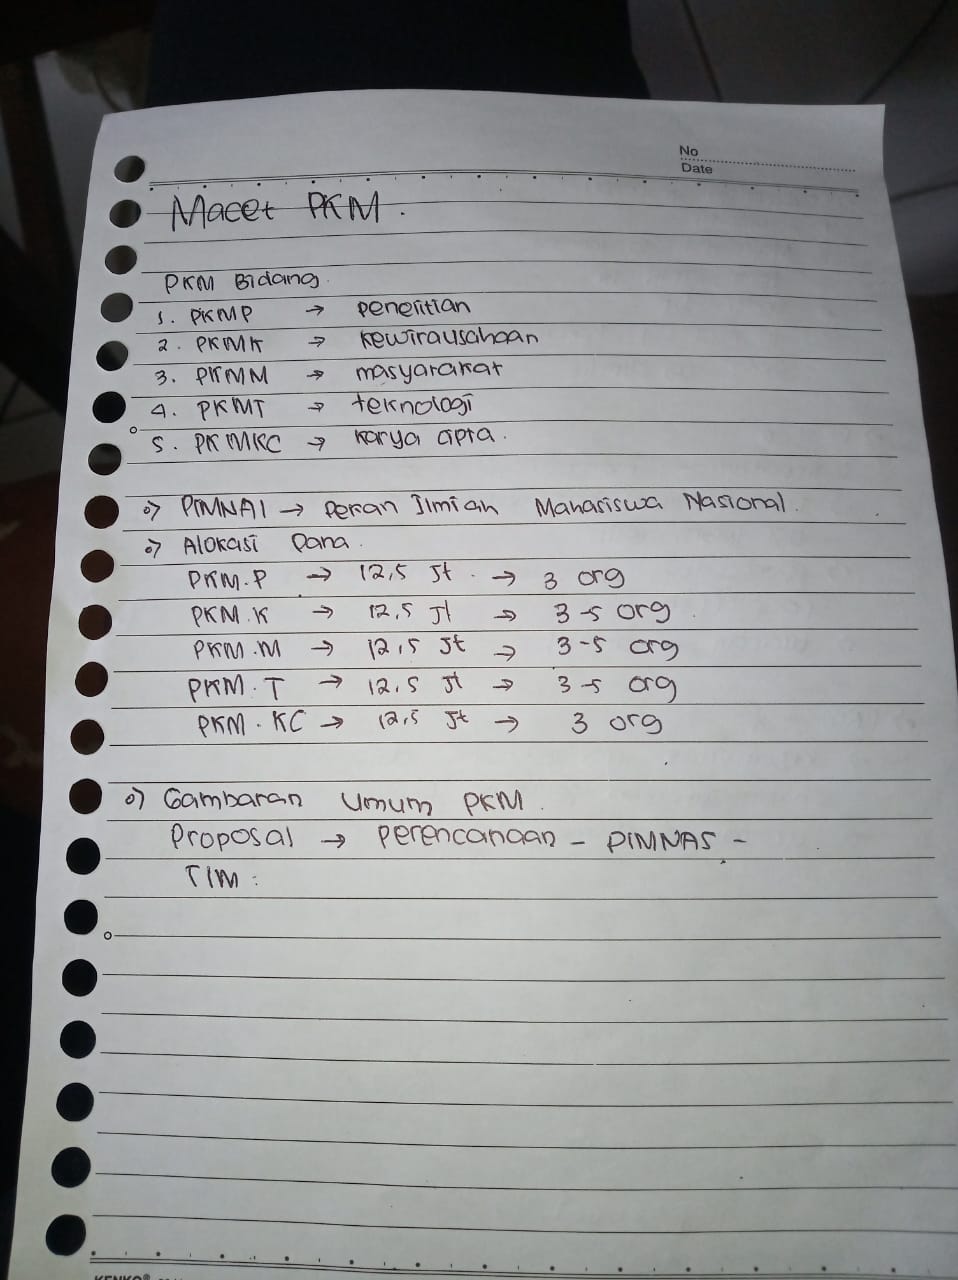 No
Date
Macet PKM.
PKM Bidang.
1. PKMP → penelitian
2. PKMK → kewirausahaan
3. PKMM → masyarakat
4. PKMT → teknologi
5. PKMKC → karya cipta.
o) PIMNAI → Pekan Ilmiah Mahasiswa Nasional.
o) Alokasi Dana.
PKM.P → 12,5 Jt. → 3 org
PKM.K → 12,5 Jt → 3-5 org.
PKM.M → 12,5 Jt → 3-5 org
PKM.T → 12,5 Jt → 3-5 org
PKM.KC → 12,5 Jt → 3 org
o) Gambaran Umum PKM.
Proposal → perencanaan - PIMNAS -
TIM:
KENKO®